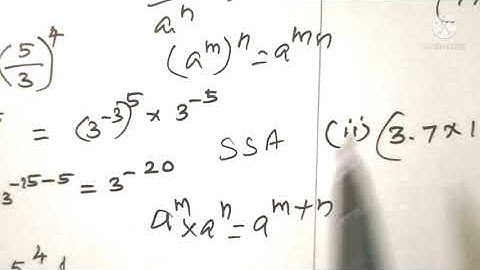 a^n
(5/3)^4
(a^m)^n = a^mn
= (3^-3)^5 × 3^-5
SSA
(ii) (3.7 × 1
3^-15-5 = 3^-20
a^m × a^n = a^m+n
5^4